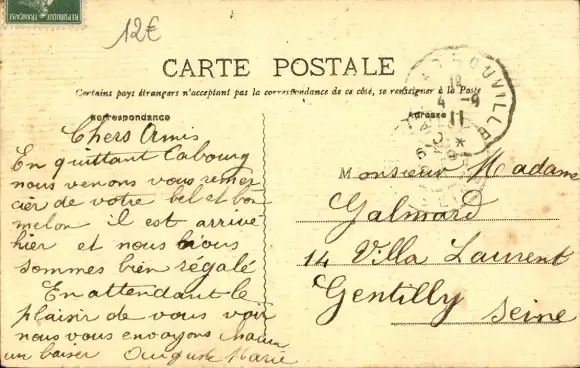 12€
CARTE POSTALE
Certains pays étrangers n'acceptent pas la correspondance de ce côté, se renseigner à la Poste
Correspondance
Adresse
Chers Amis
En quittant Cabourg
nous venons vous remer
cier de votre bel et bon
melon il est arrivé
hier et nous nous
sommes bien régalé
En attendant le
plaisir de vous voir
nous vous envoyons chacun
un baiser Auguste Marie
Monsieur Madame
Galmard
14 Villa Laurent
Gentilly Seine
4 - 9
11